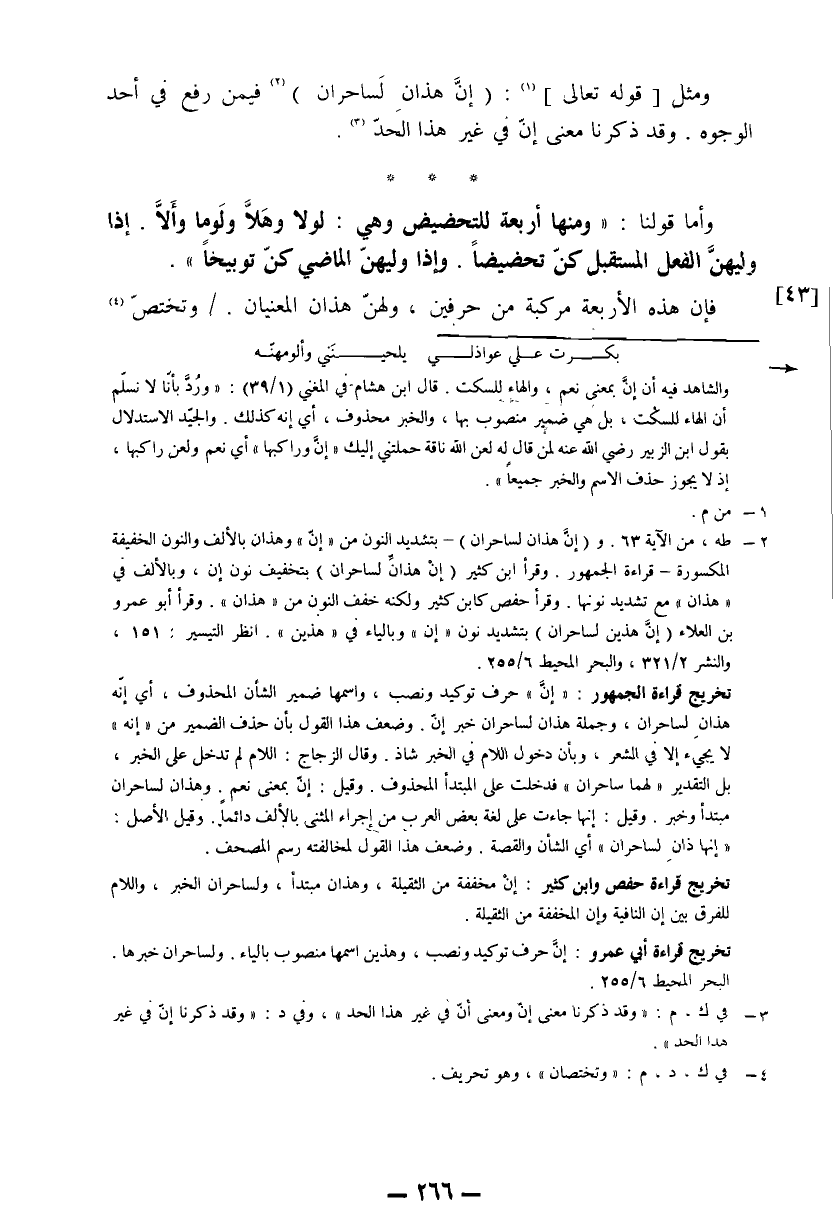 ومثل [ قوله تعالى ] (١) : ( إنَّ هذانِ لَساحران ) (٢) فيمن رفع في أحد
الوجوه . وقد ذكرنا معنى إنّ في غير هذا الحدّ (٣) .
* * *
وأما قولنا : « ومنها أربعة للتحضيض وهي : لولا وهَلاَّ ولَوما وأَلاَّ . إذا
وليهنَّ الفعل المستقبل كنّ تحضيضاً . وإذا وليهنّ الماضي كنّ توبيخاً » .
[٤٣]
فإن هذه الأربعة مركبة من حرفين ، ولهنّ هذان المعنيان . / وتختصّ (٤)
بكـــرت عـلـي عواذلــي يلحيـــنَني وألومهنّـه
والشاهد فيه أن إنَّ بمعنى نعم ، والهاء للسكت . قال ابن هشام في المغني (٣٩/١) : « ورُدَّ بأنّا لا نسلّم
أن الهاء للسكْت ، بل هي ضمير منصوب بها ، والخبر محذوف ، أي إنه كذلك . والجيّد الاستدلال
بقول ابن الزبير رضي الله عنه لمن قال له لعن الله ناقة حملتني إليك « إنَّ وراكبها » أي نعم ولعن راكبها ،
إذ لا يجوز حذف الاسم والخبر جميعاً » .
١ – من م .
٢ – طه ، من الآية ٦٣ . و ( إنَّ هذان لساحران ) – بتشديد النون من « إنّ » وهذان بالألف والنون الخفيفة
المكسورة – قراءة الجمهور . وقرأ ابن كثير ( إنْ هذانِّ لساحران ) بتخفيف نون إن ، وبالألف في
« هذان » مع تشديد نونها . وقرأ حفص كابن كثير ولكنه خفف النون من « هذان » . وقرأ أبو عمرو
بن العلاء ( إنَّ هذين لساحران ) بتشديد نون « إن » وبالياء في « هذين » . انظر التيسير : ١٥١ ،
والنشر ٣٢١/٢ ، والبحر المحيط ٢٥٥/٦ .
تخريج قراءة الجمهور : « إنَّ » حرف توكيد ونصب ، واسمها ضمير الشأن المحذوف ، أي إنّه
هذانِ لساحران ، وجملة هذان لساحران خبر إنّ . وضعف هذا القول بأن حذف الضمير من « إنه »
لا يجيء إلا في الشعر ، وبأن دخول اللام في الخبر شاذ . وقال الزجاج : اللام لم تدخل على الخبر ،
بل التقدير « لهما ساحران » فدخلت على المبتدأ المحذوف . وقيل : إنّ بمعنى نعم . وهذان لساحران
مبتدأ وخبر . وقيل : إنها جاءت على لغة بعض العرب من إجراء المثنى بالألف دائماً . وقيل الأصل :
« إنها ذانِ لساحران » أي الشأن والقصة . وضعف هذا القول لمخالفته رسم المصحف .
تخريج قراءة حفص وابن كثير : إنْ مخففة من الثقيلة ، وهذان مبتدأ ، ولساحران الخبر ، واللام
للفرق بين إن النافية وإن المخففة من الثقيلة .
تخريج قراءة أبي عمرو : إنَّ حرف توكيد ونصب ، وهذين اسمها منصوب بالياء . ولساحران خبرها .
البحر المحيط ٢٥٥/٦ .
٣ – في ك . م : « وقد ذكرنا معنى إنّ ومعنى أنّ في غير هذا الحد » ، وفي د : « وقد ذكرنا إنّ في غير
هذا الحد » .
٤ – في ك . د . م : « وتختصان » ، وهو تحريف .
– ٢٦٦ –